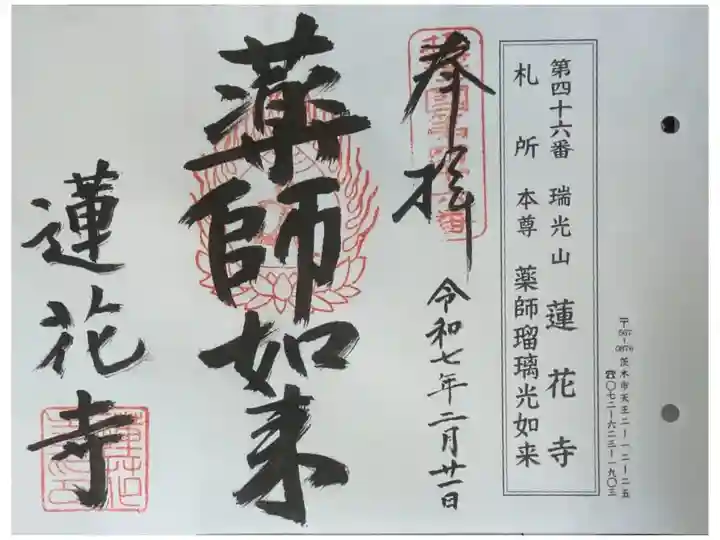 〒567-0876 茨木市天王二-一二-二五
☎〇七二-六二三-一九〇三
第四十六番 瑞光山 蓮花寺
札所本尊 薬師瑠璃光如来
奉拝
令和七年二月廿一日
薬師如来
蓮花寺